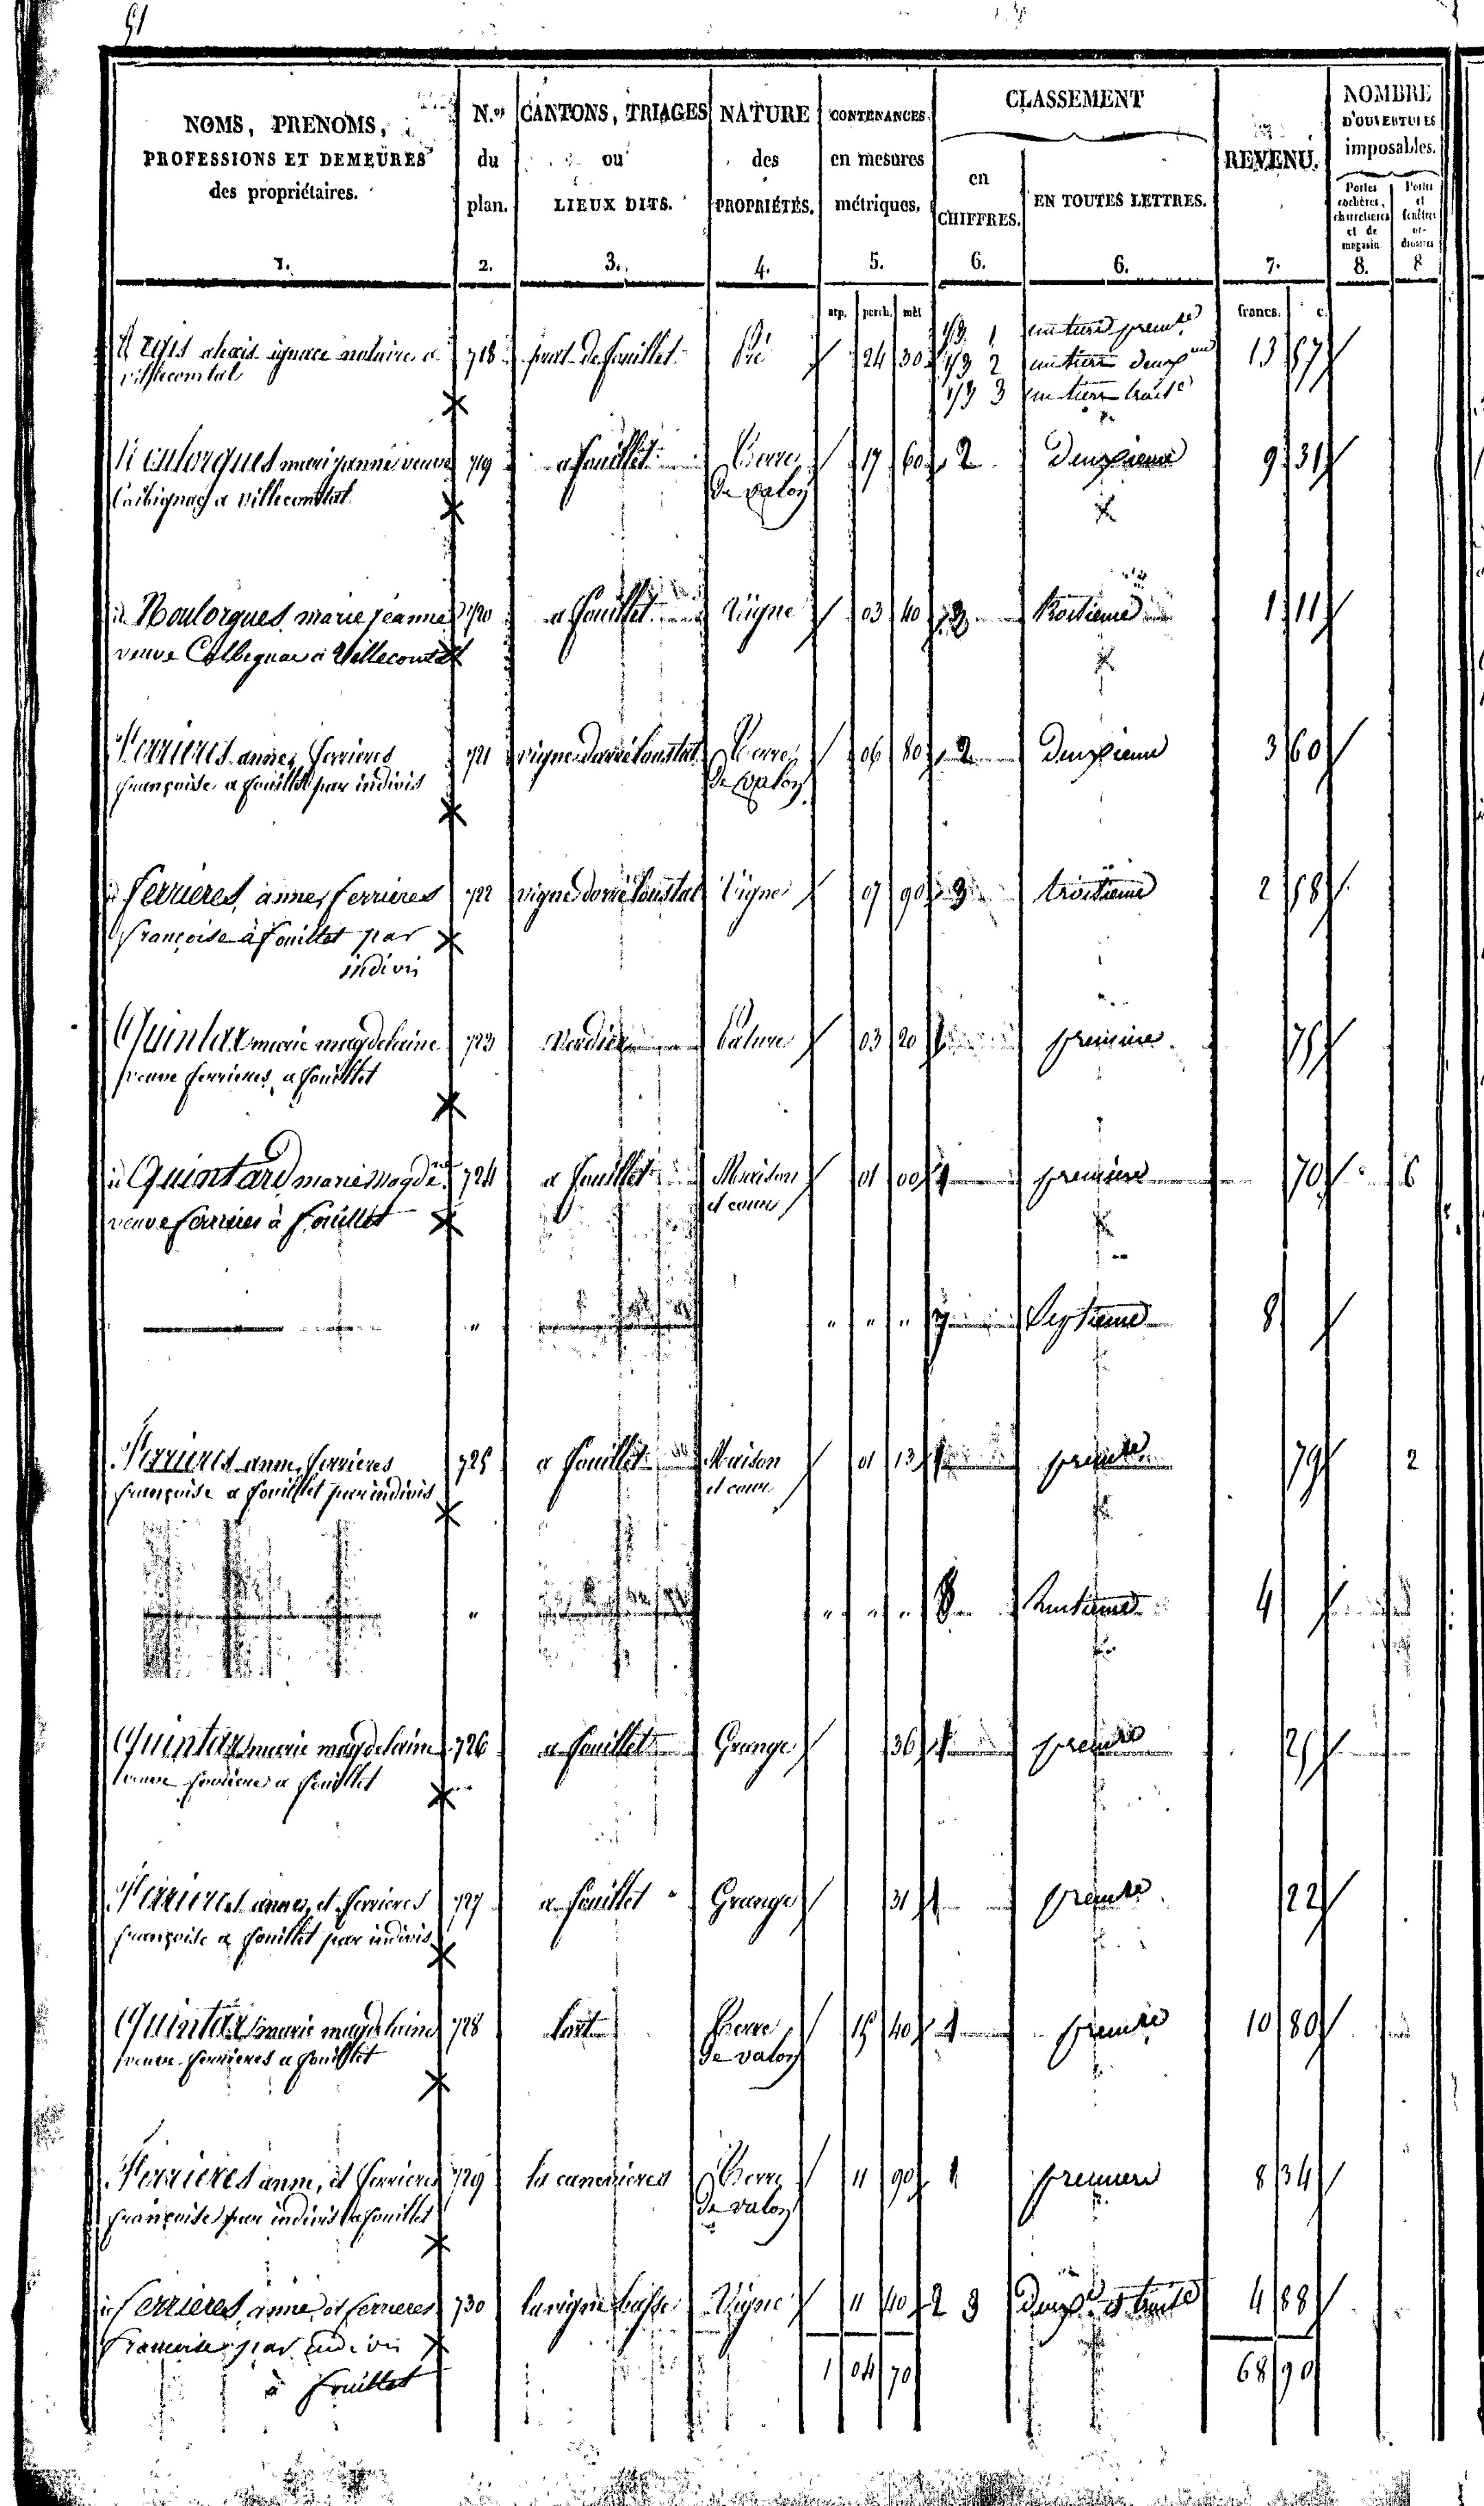 91
NOMS, PRENOMS,
PROFESSIONS ET DEMEURES
des propriétaires.
1.
N.os
du
plan.
2.
CANTONS, TRIAGES
ou
LIEUX DITS.
3.
NATURE
des
PROPRIÉTÉS.
4.
CONTENANCES
en mesures
métriques.
5.
CLASSEMENT
en
CHIFFRES.
6.
EN TOUTES LETTRES.
6.
REVENU.
7.
NOMBRE
D'OUVERTURES
imposables.
Portes
cochères,
charretières
et de
magasin
8.
Portes
et
fenêtres
or-
dinaires
8
arp. perch. mèt francs. c.
1/3 1 un tiers prem.re
alexis ignace notaire a 718 prat de fouillet Pré 24 30 1/3 2 un tiers deuxeme 13 57
villecomtal
1/3 3 un tiers troise
marijeanne veuve 719 a fouillet Terre 17 60 2 Deuxieme 9 31
a villecomtal de valoy
Noulorgues marie jeanne 720 a fouillet Vigne 03 40 3 troisieme 1 11
veuve a Villecomtal
Ferrieres anne, ferrieres 721 vigne Terre 06 80 2 Deuxieme 3 60
françoise a fouillet par indivis de valoy
Ferrieres anne, ferrieres 722 vigne Vigne 07 90 3 troisieme 2 58
françoise à fouillet par
indivis
Quintar marie magdelaine 723 Pature 03 20 1 premiere 75
veuve ferrieres a fouillet
Quintard marie magdne 724 a fouillet Maison 01 00 1 premiere 70 6
veuve ferrieres à fouillet et cour
" " " " 7 Septieme 8
Ferrieres anne, ferrieres 725 a fouillet Maison 01 13 1 premre 79 2
françoise a fouillet par indivis et cour
" " " " 8 huitieme 4
Quintar marie magdelaine 726 a fouillet Grange 36 1 premre 25
veuve ferrieres a fouillet
Ferrieres anne, et ferrieres 727 a fouillet Grange 31 1 premre 22
françoise a fouillet par indivis
Quintar marie magdelaine 728 lort Terre 15 40 1 premre 10 80
veuve ferrieres a fouillet de valoy
Ferrieres anne, et ferrieres 729 les Terre 11 90 1 premiere 8 34
françoise par indivis a fouillet de valoy
Ferrieres anne, et ferrieres 730 la vigne basse Vigne 11 40 2 3 deuxe et troise 4 88
francoise par indivis
à fouillet
1 04 70 68 90